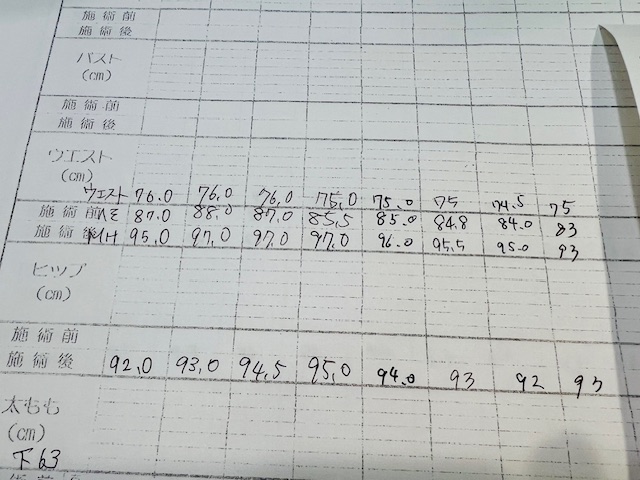 施術前
施術後
バスト
(cm)
施術前
施術後
ウエスト
(cm)
ウェスト 76.0 76.0 76.0 75.0 75.0 75 74.5 75
施術前 87.0 88.0 87.0 85.5 85.0 84.8 84.0 83
施術後 MH 95.0 97.0 97.0 97.0 96.0 95.5 95.0 93
ヒップ
(cm)
施術前
施術後 92.0 93.0 94.5 95.0 94.0 93 92 93
太もも
(cm)
下63